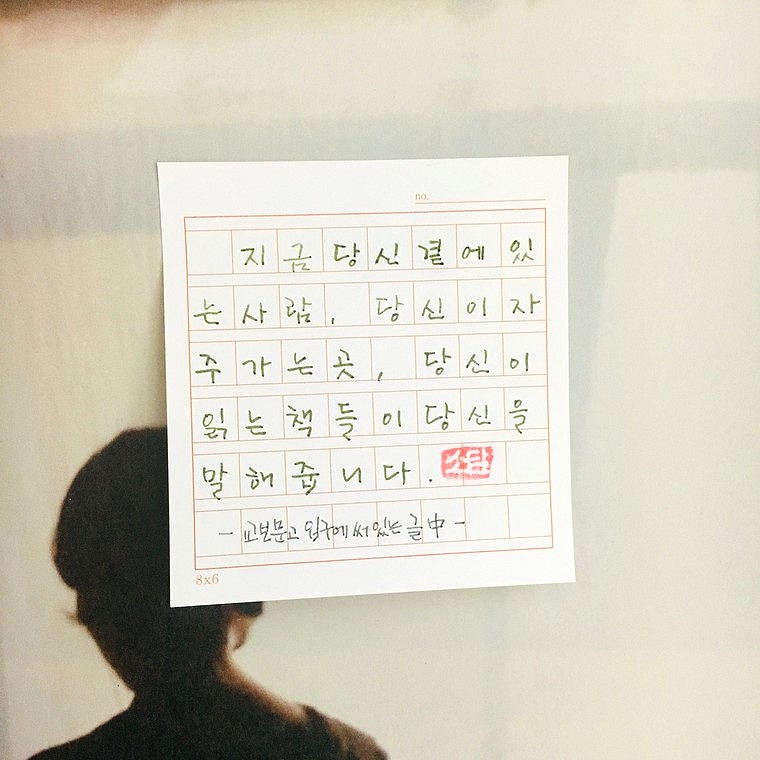 no.
지금 당신 곁에 있
는 사람, 당신이 자
주 가는 곳, 당신이
읽는 책들이 당신을
말해 줍니다.
소담
- 교보문고 입구에 써 있는 글 中 -
8x6